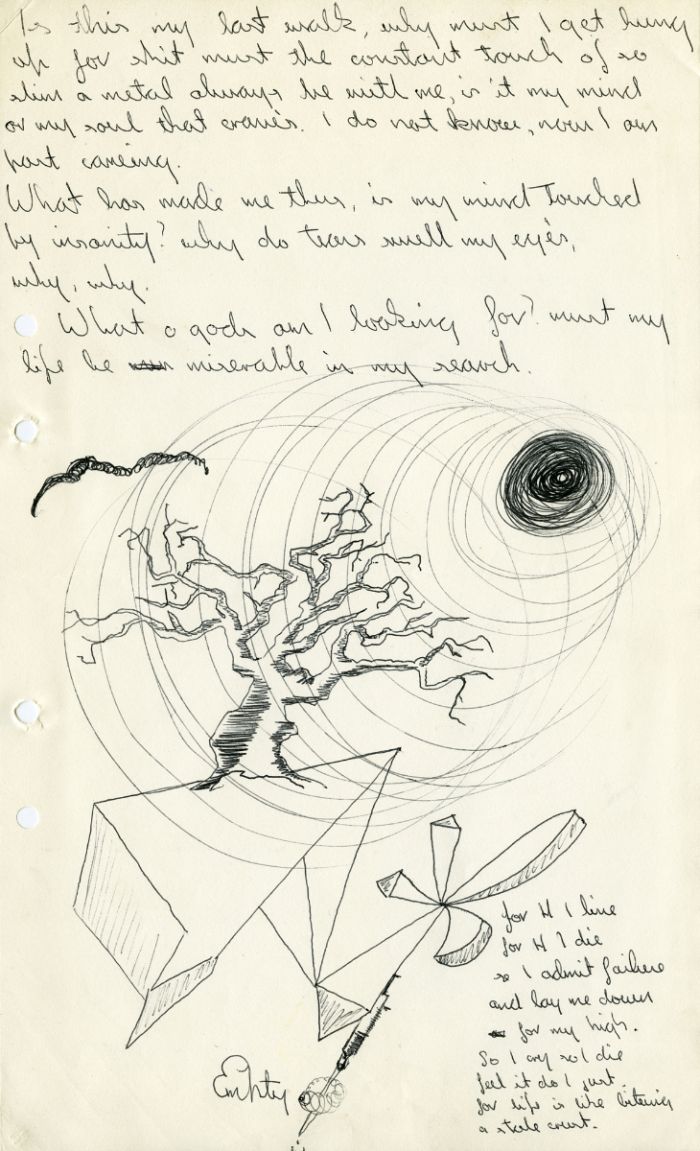 Is this my last walk, why must I get hung
up for shit must the constant touch of so
slim a metal always be with me, is it my mind
or my soul that craves. I do not know, now I am
past careing.
What has made me thus, is my mind Touched
by insanity? why do tears swell my eyes,
why, why.
What o gods am I looking for? must my
life be miserable in my search.
for H I live
for H I die
so I admit failure
and lay me down
for my high.
So I cry so I die
feel it do I just.
for life is like biteing
a stale crust.
Empty